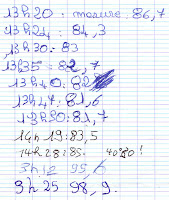 13h20 : mesure : 86,7
13h24 : 84,3
13h30 : 83
13h35 : 82,7
13h40 : 82
13h47 : 81,6
13h50 : 81,7
14h19 : 83,5
14h28 : 85.
3h12 95,6
3h25 98,9.